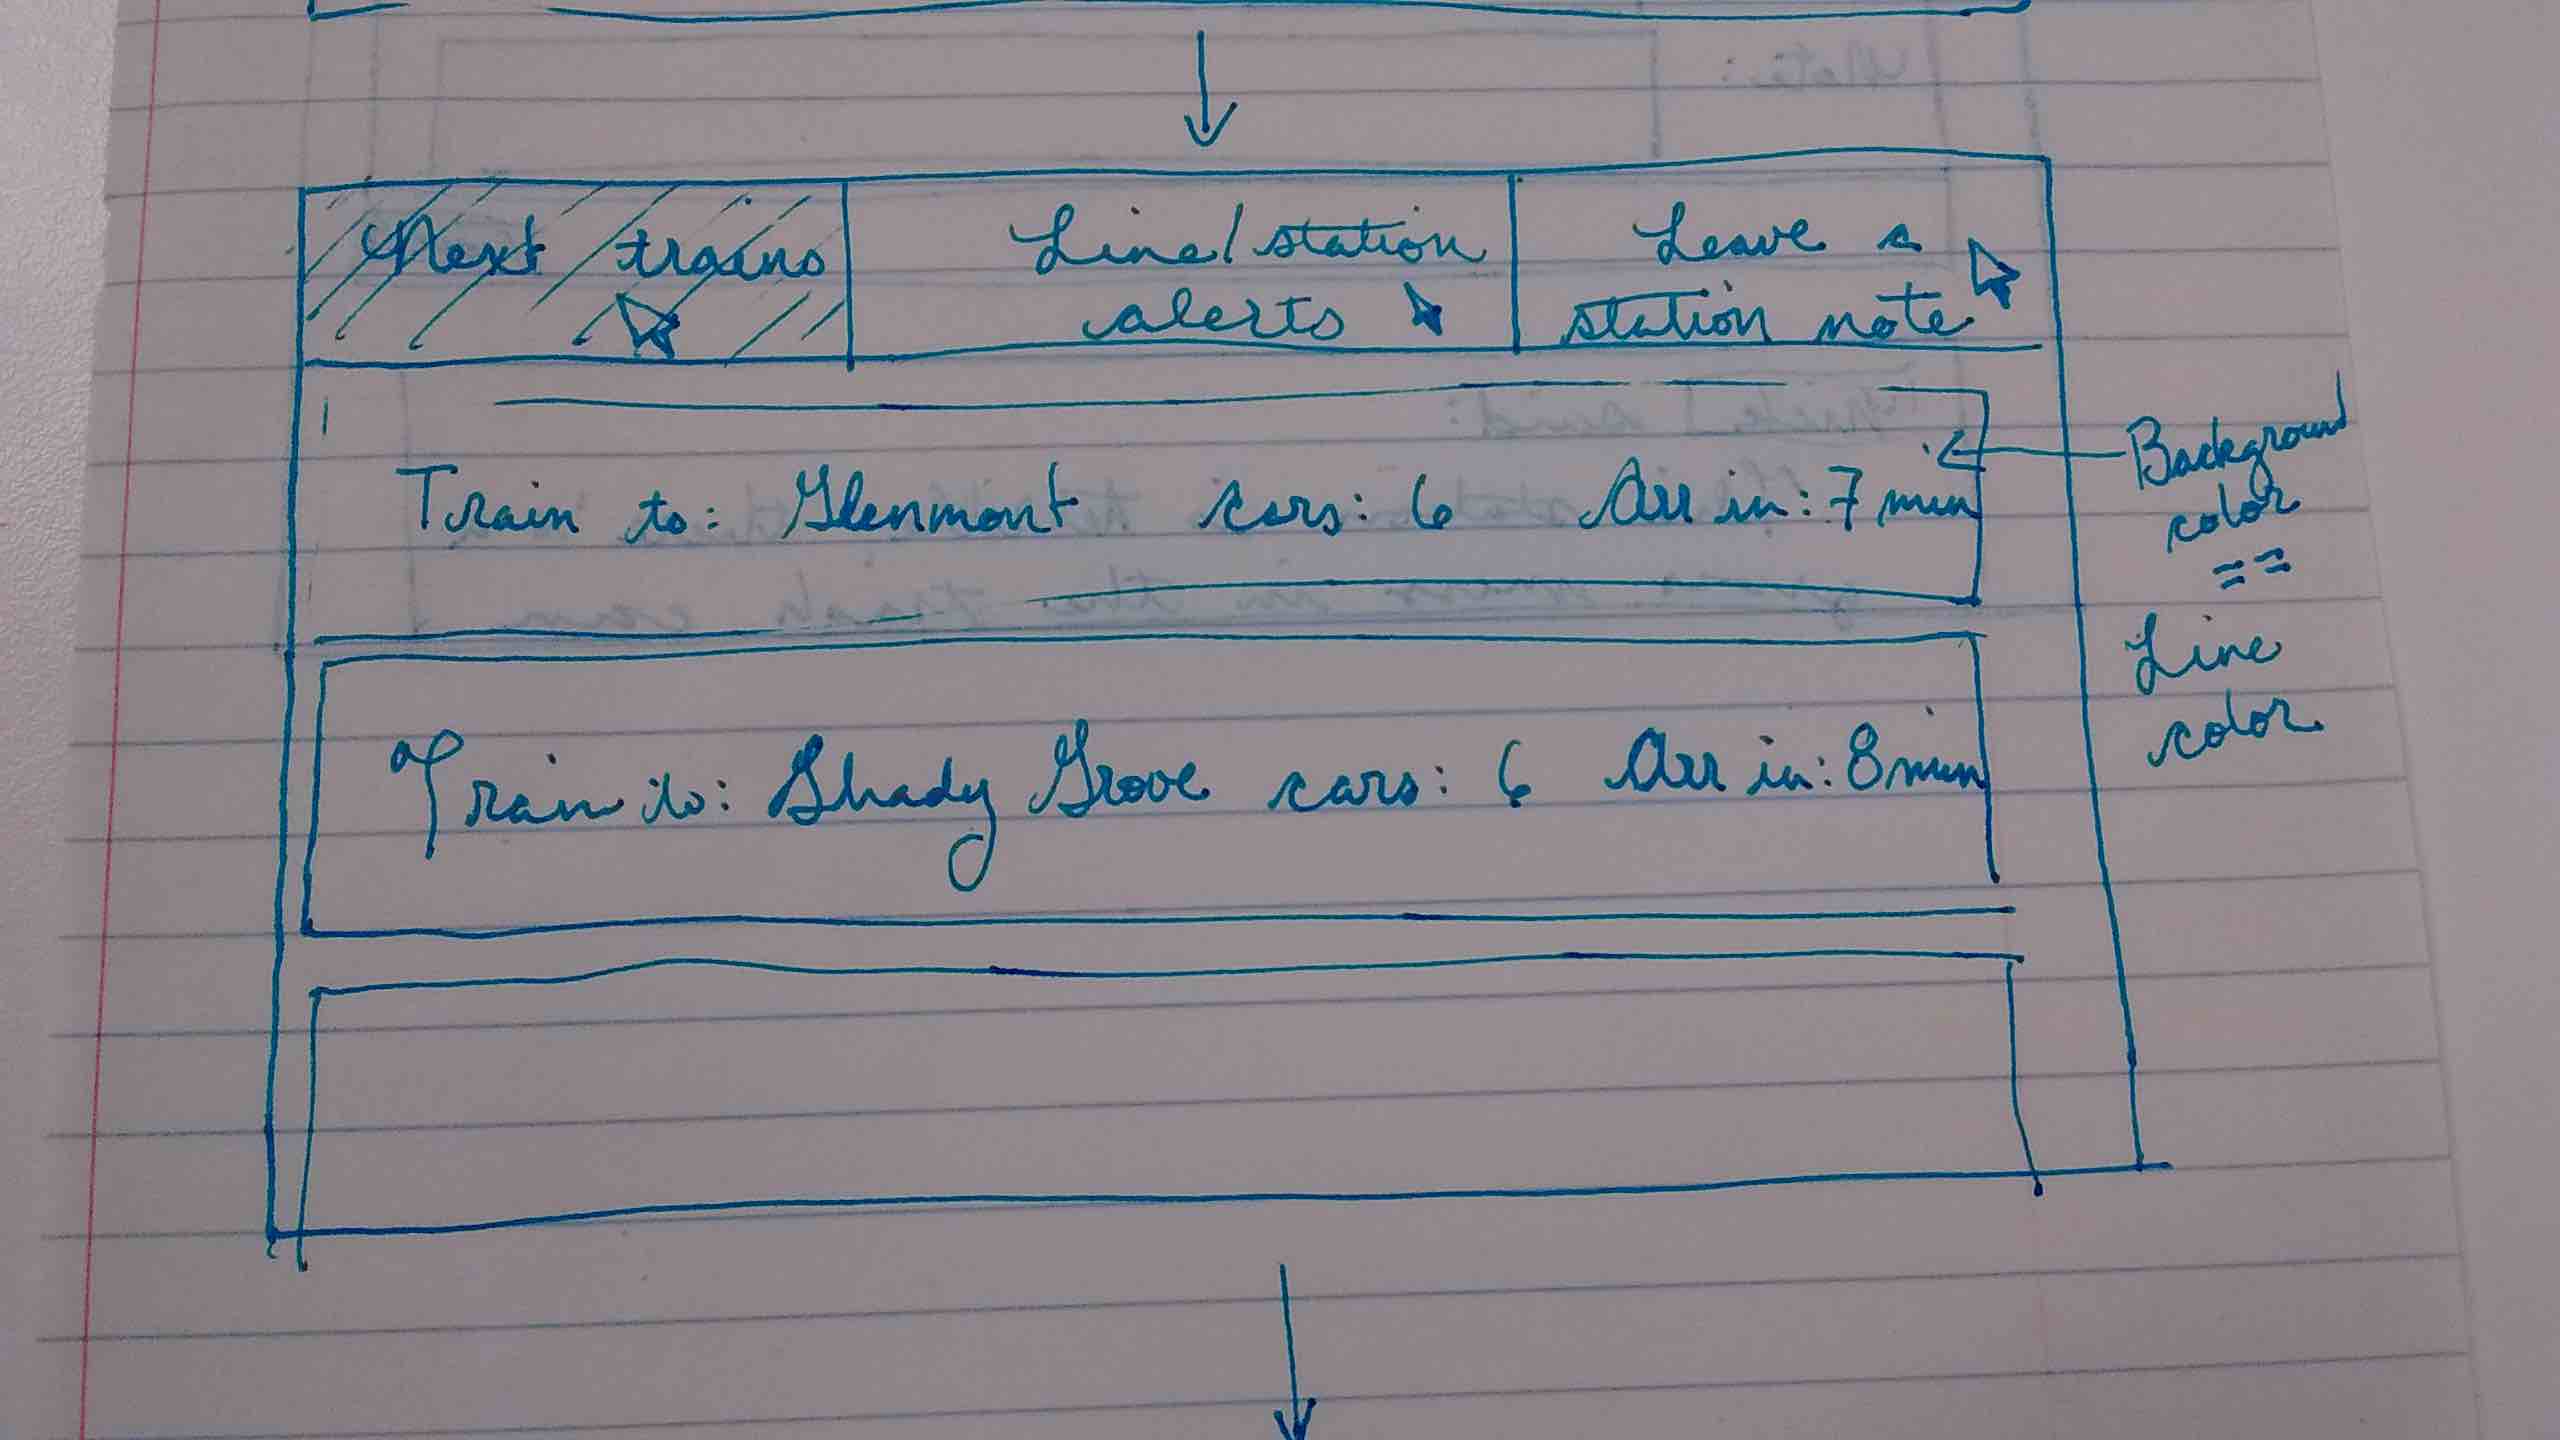 Next trains
Line/station
alerts
Leave a
station note
Train to: Glenmont cars: 6 Arr in: 7 min
Background
color
==
Line
color
Train to: Shady Grove cars: 6 Arr in: 8 min